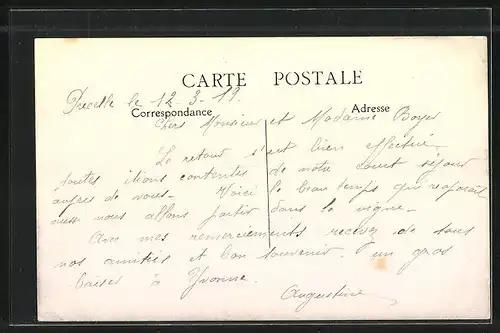 CARTE POSTALE
le 12-3-19.
Correspondance
Adresse
Chers Monsieur et Madame Boyer
Le retour s'est bien effectué.
toutes étions contentes de notre court séjour
auprès de vous. Voici le beau temps qui reparait
aussi nous allons partir dans la vigne.
Avec mes remerciements recevez de tous
nos amitiés et bon souvenir. d'un gros
baiser à Yvonne.
Augustine